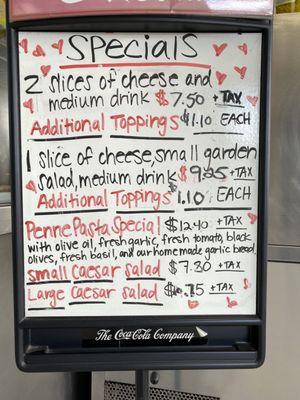 Specials
2 slices of cheese and
medium drink $7.50 + TAX
Additional Toppings $1.10 EACH
1 slice of cheese, small garden
salad, medium drink $9.25 + TAX
Additional Toppings 1.10 EACH
Penne Pasta Special $12.40 + TAX
with olive oil, fresh garlic, fresh tomato, black
olives, fresh basil, and our home made garlic bread.
small Caesar salad $7.30 + TAX
Large Caesar salad + TAX
The Coca-Cola Company